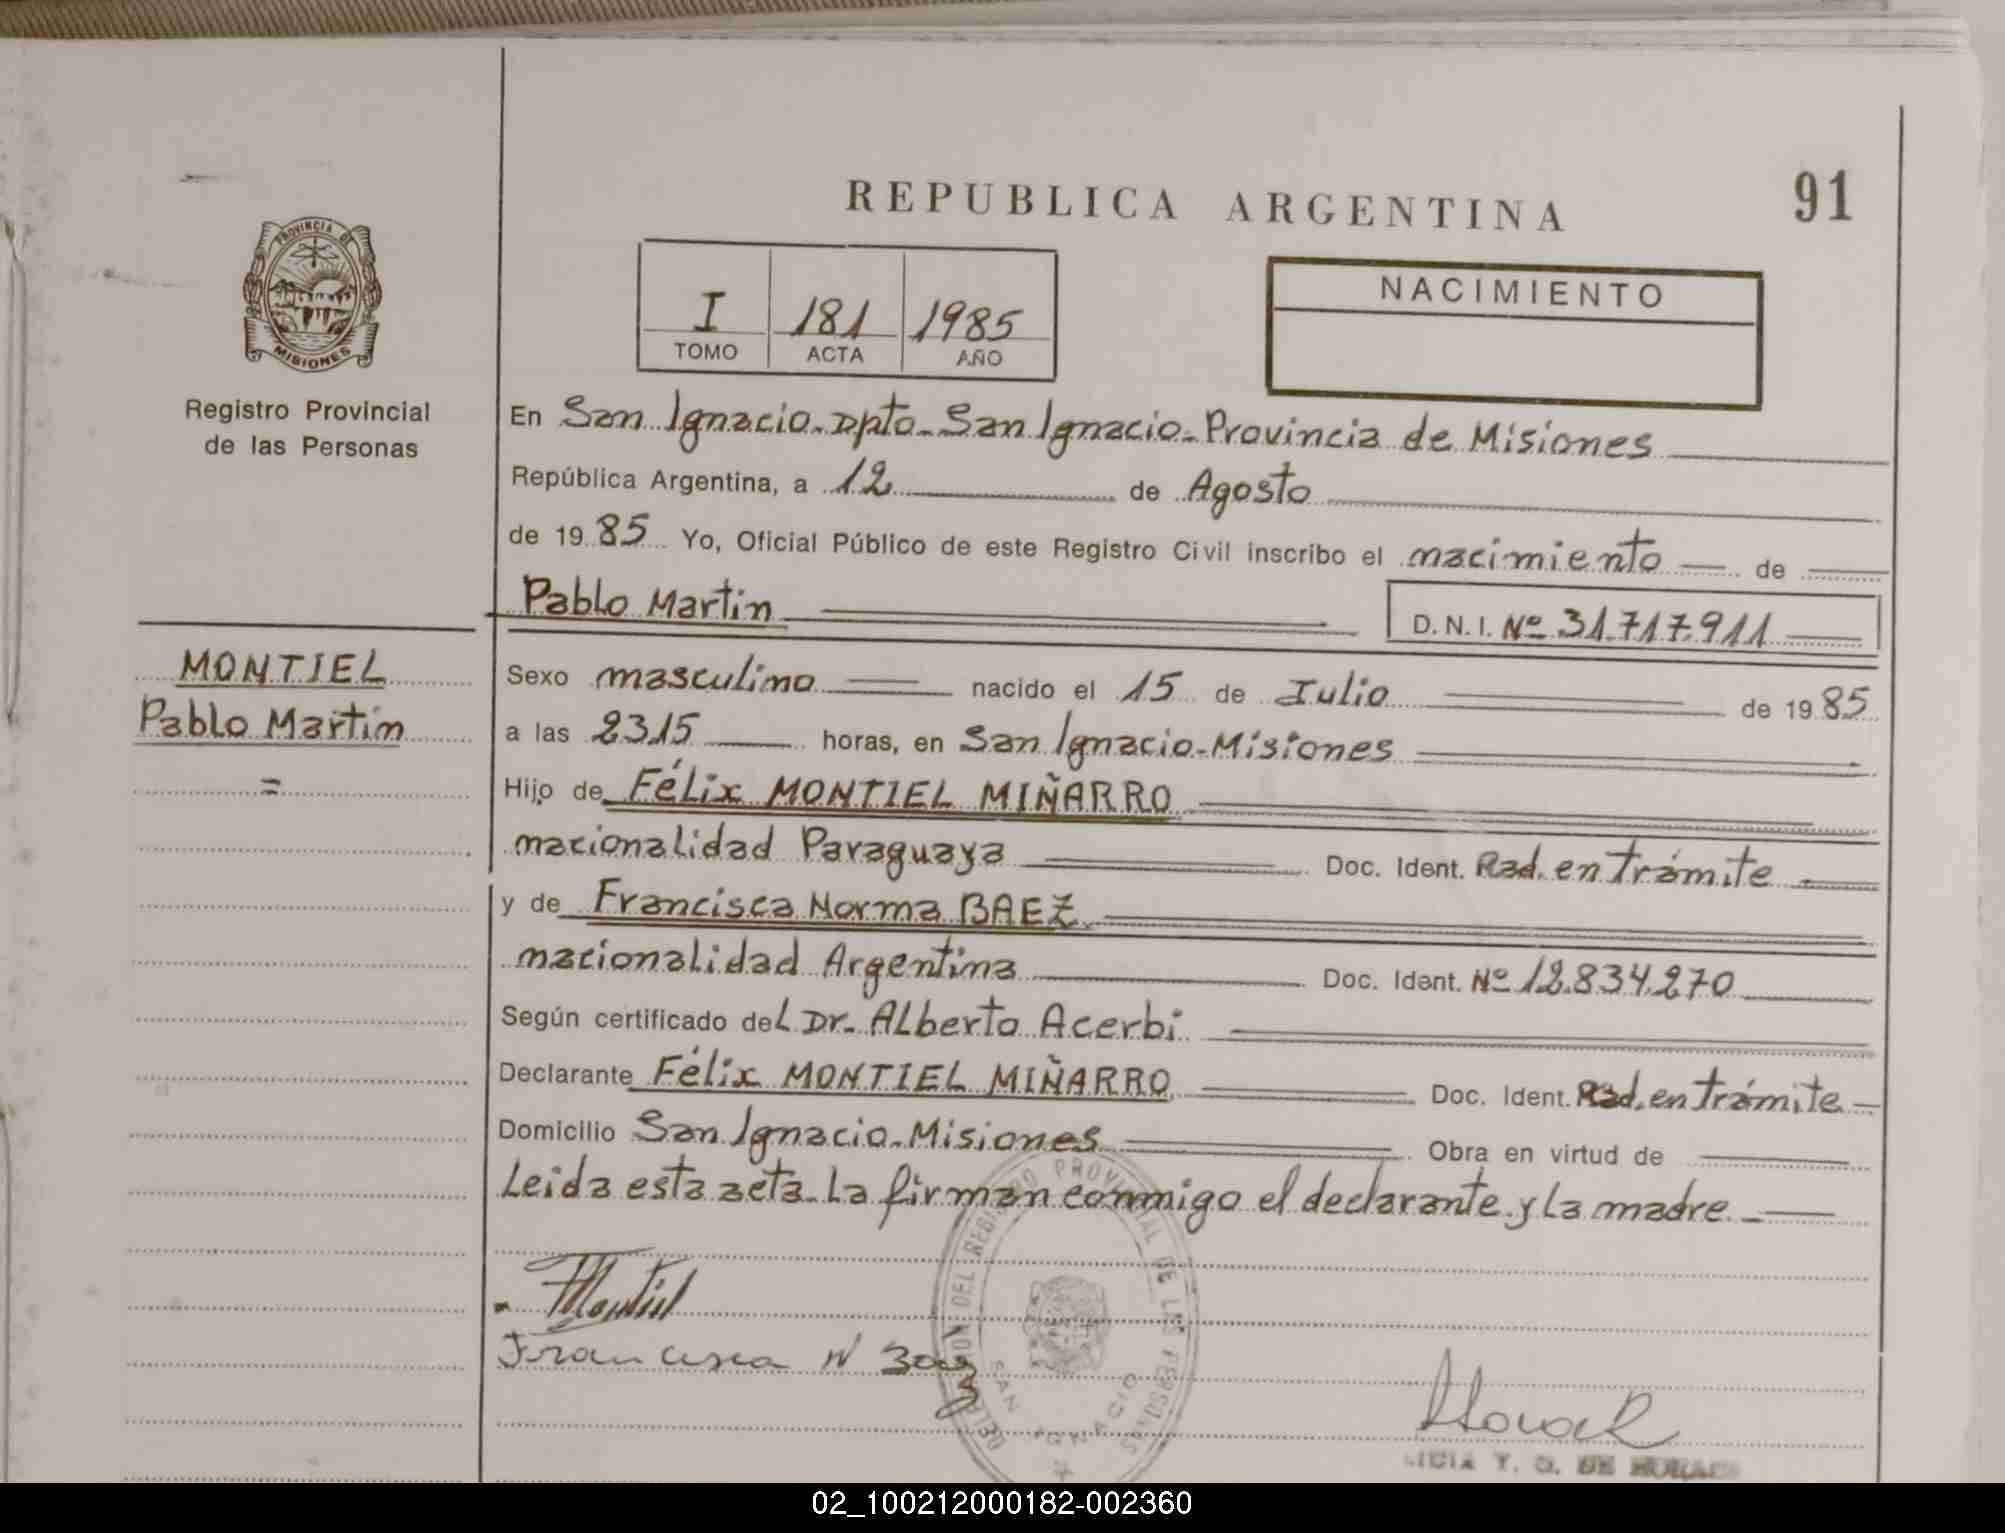 REPUBLICA ARGENTINA
91
PROVINCIA DE
MISIONES
Registro Provincial
de las Personas
I 181 1985
TOMO ACTA AÑO
NACIMIENTO
En San Ignacio-Dpto-San Ignacio-Provincia de Misiones
República Argentina, a 12 de Agosto
de 19 85 Yo, Oficial Público de este Registro Civil inscribo el nacimiento — de
Pablo Martin D.N.I. Nº 31.717.911
MONTIEL
Pablo Martin
=
Sexo masculino nacido el 15 de Julio de 19 85
a las 23.15 horas, en San Ignacio-Misiones
Hijo de Félix MONTIEL MIÑARRO
nacionalidad Paraguaya Doc. Ident. Rad. en Trámite
y de Francisca Norma BAEZ
nacionalidad Argentina Doc. Ident. Nº 12.834.270
Según certificado del Dr. Alberto Acerbi
Declarante Félix MONTIEL MIÑARRO Doc. Ident. Rad. en Trámite
Domicilio San Ignacio-Misiones Obra en virtud de
Leida esta acta-La firman conmigo el declarante y la madre
Montiel
Francisca N Baez
DELEGACION DEL REGISTRO PROVINCIAL DE LAS PERSONAS
SAN IGNACIO
02_100212000182-002360